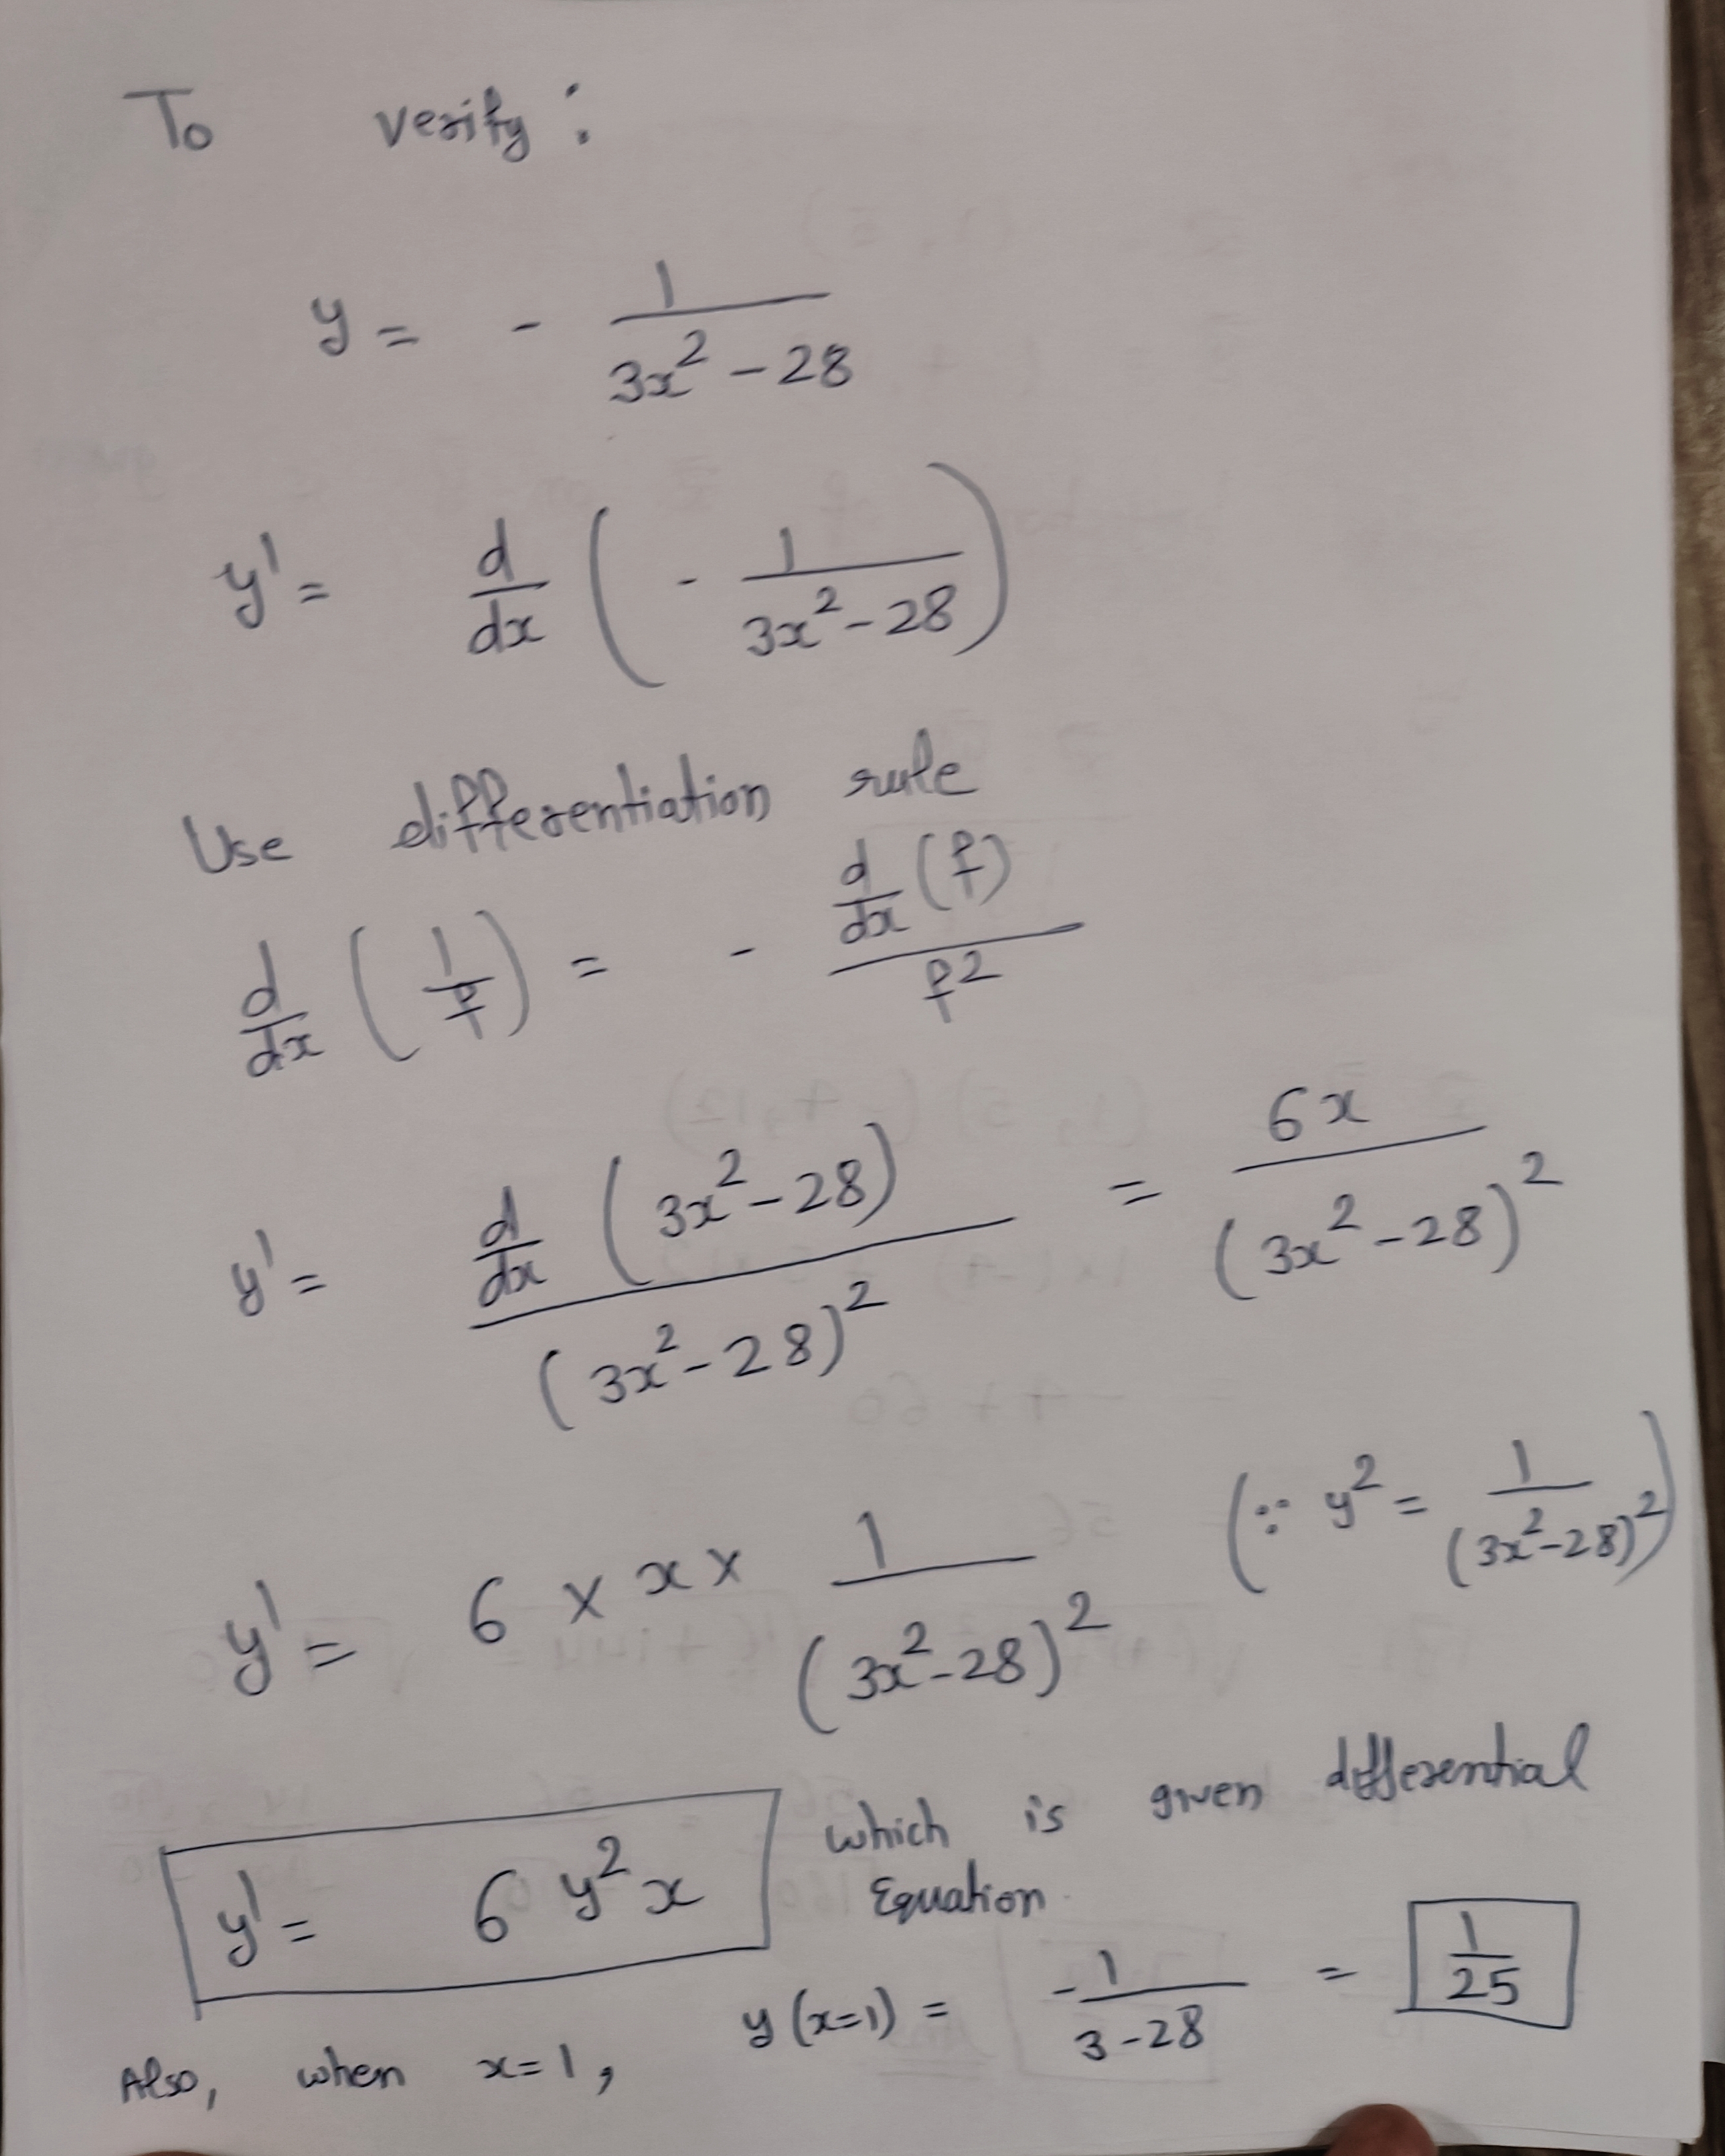 To verify :
y = - 1/(3x² - 28)
y' = d/dx ( - 1/(3x² - 28) )
Use differentiation rule
d/dx (1/f) = - d/dx (f) / f²
y' = d/dx (3x² - 28) / (3x² - 28)² = 6x / (3x² - 28)²
y' = 6 × x × 1/(3x² - 28)² (∵ y² = 1/(3x² - 28)²)
y' = 6 y² x which is given differential
Equation
Also, when x = 1, y (x=1) = -1/(3 - 28) = 1/25